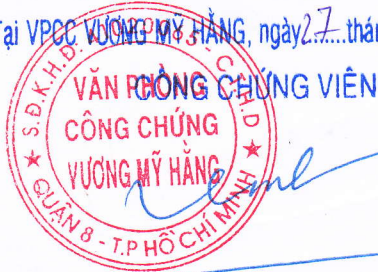 Tại VPCC VƯƠNG MỸ HẰNG, ngày 27 thán
CÔNG CHỨNG VIÊN
S.Đ.K.H.Đ
C.C.H.D
VĂN PHÒNG
CÔNG CHỨNG
VƯƠNG MỸ HẰNG
QUẬN 8 - T.P HỒ CHÍ MINH